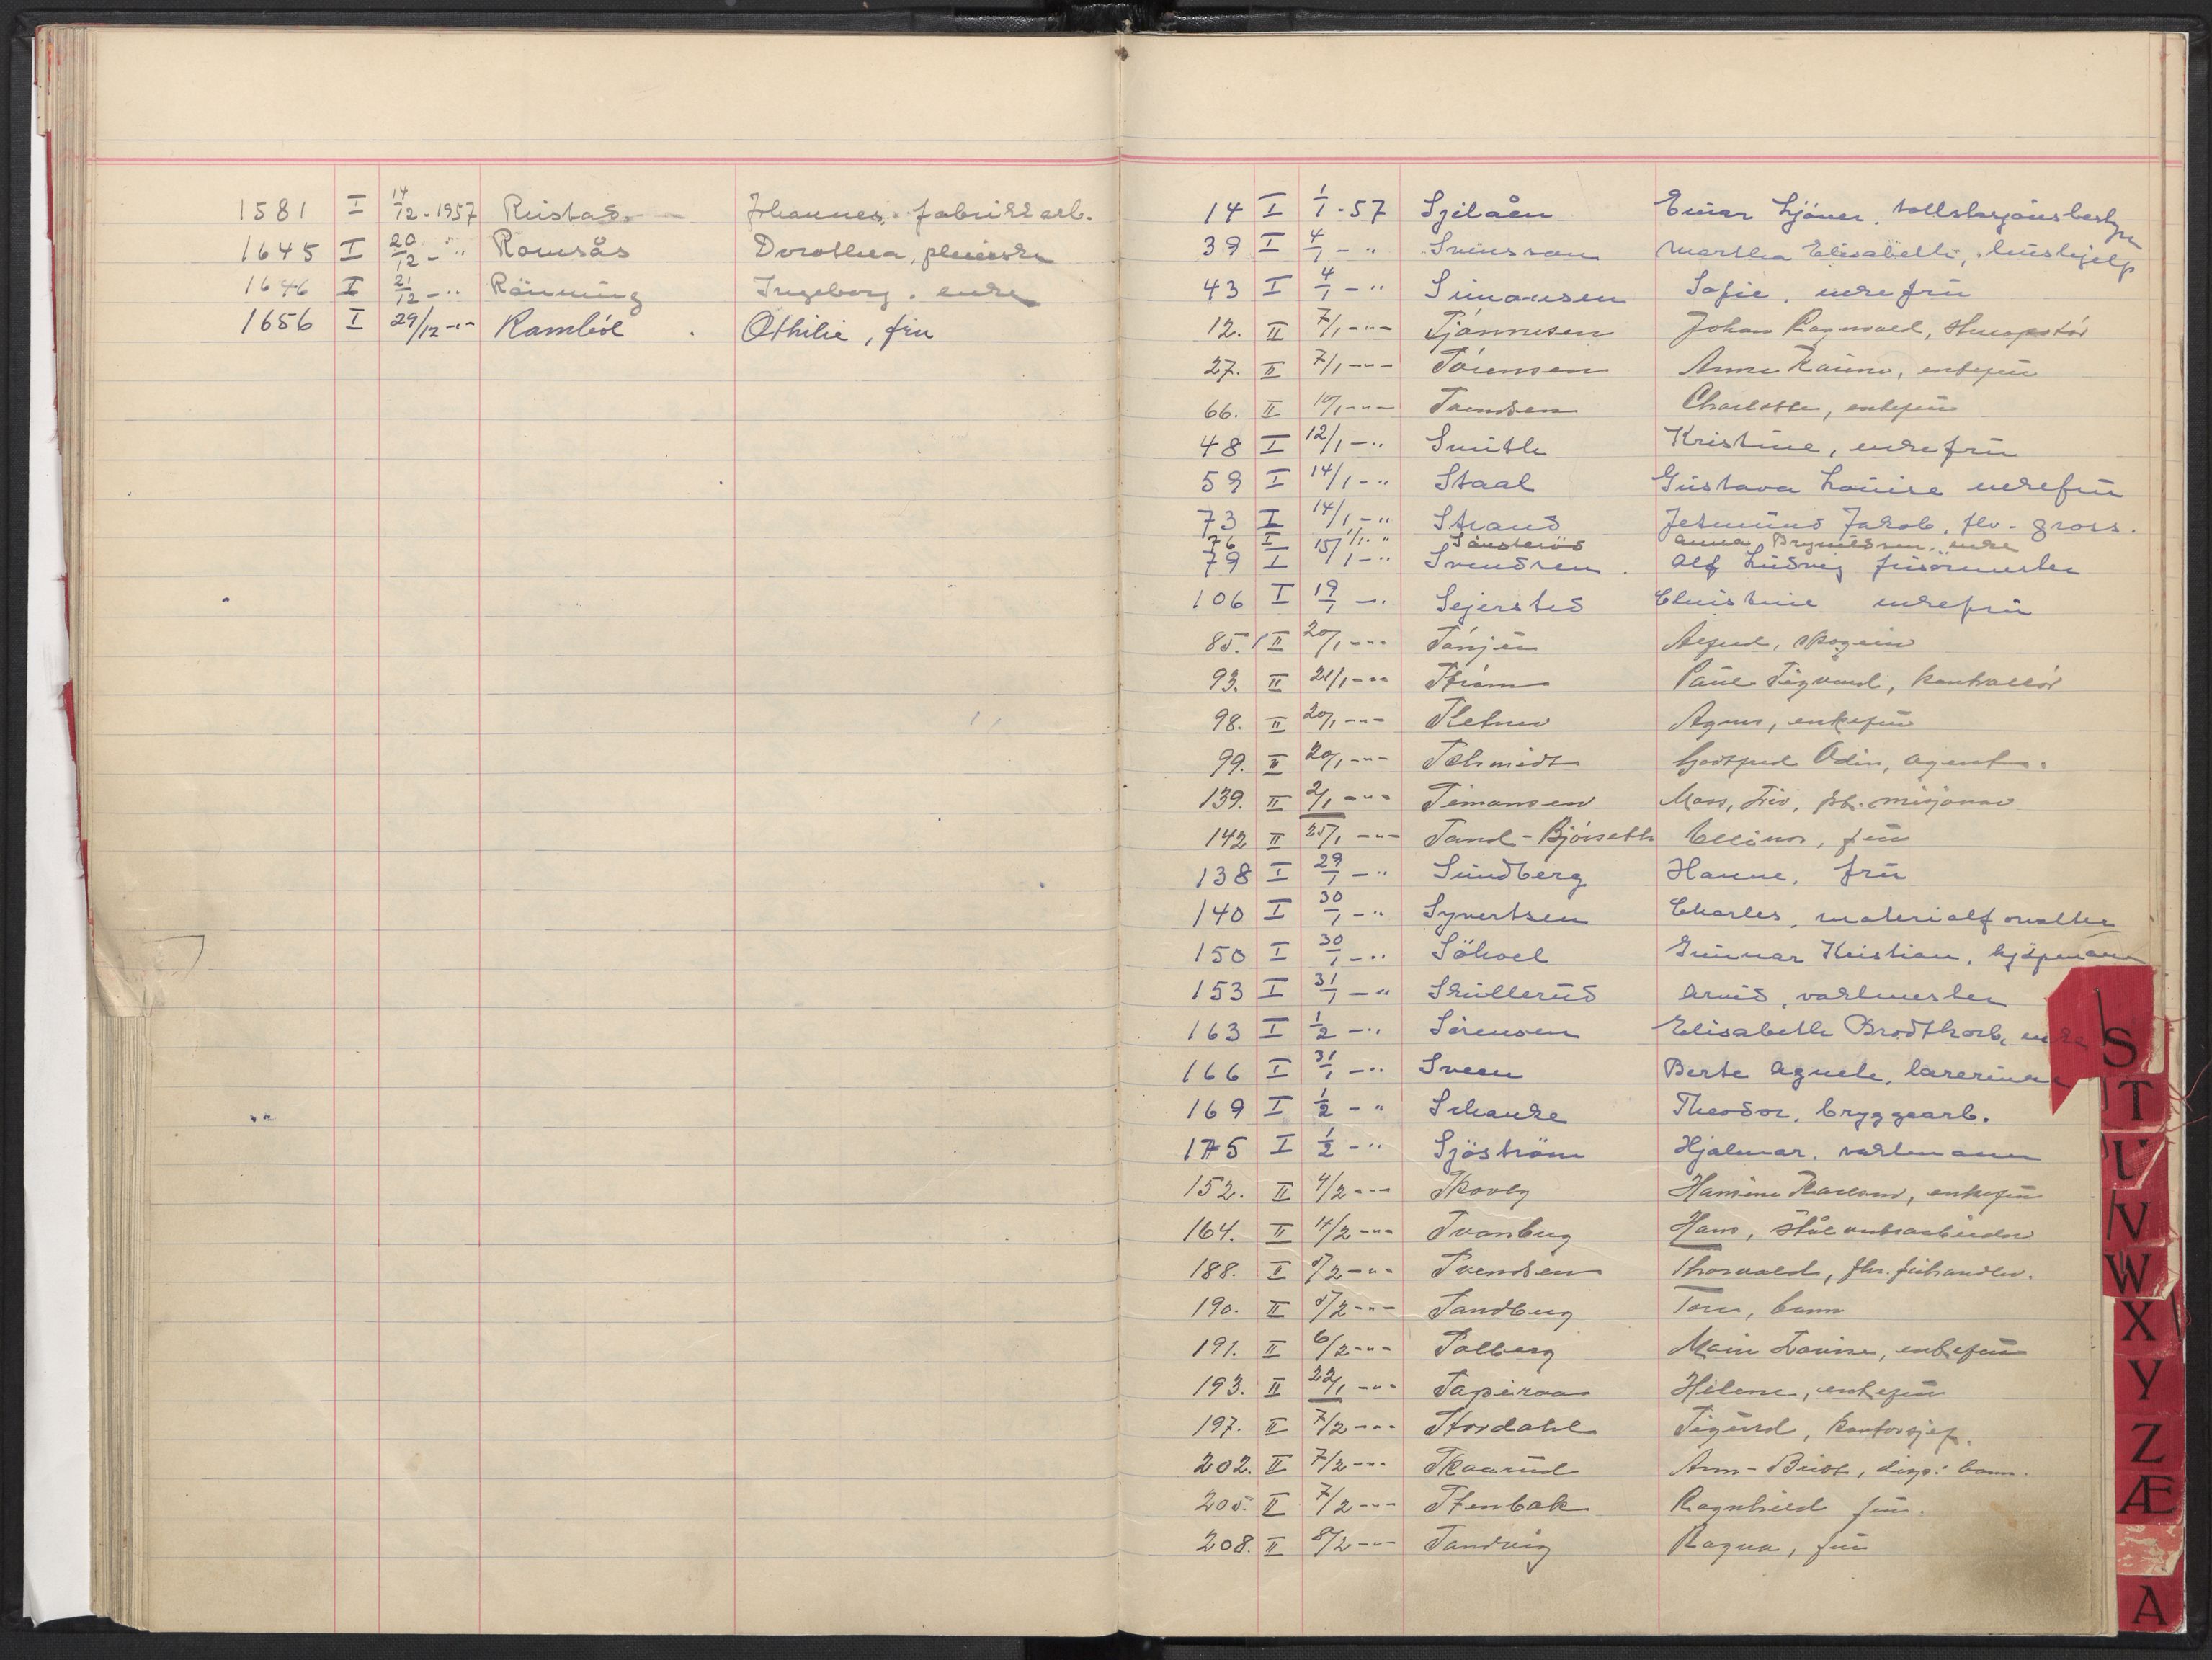 1581 I 14/12-1957 Rustad Johannes, fabrikkarb.
1645 I 20/12 - " Romsås Dorothea, pleierske
1646 I 21/12 - " Rönning Ingeborg. enke
1656 I 29/12 -"- Ramböl Othilie, fru
14 I 1/1-57 Sjilaën Einar
39 I 4/1 - " Svensson Martha Elisabeth, hushjelp
43 I 4/1 - " Simonsen Sofie, enkefru
12. II 7/1 -"- Sjönnesen Johan Ragnvald,
27. II 7/1 -"- Sörensen Anne enkefru
66. II 10/1 -"- Svendsen Charlotte, enkefru
48 I 12/1 - " Smith Kristine, enkefru
59 I 14/1 - " Staal Gustava Louise enkefru
73 I 14/1 - " Strand Jakob, fhv. gross.
76 I 1/1 " Sönsteröd Anna Bryneldsen, enke
79 I 15/1 - " Svendsen Alf Ludvig frisörmester
106 I 19/1 - " Sejersted Christine enkefru
85. II 20/1 -"- Alfred,
93. II 21/1 -"- Ström Paul Sigvard, kontrollör
98. II 20/1 -"- Agnes, enkefru
99. II 20/1 -"- Schmidt Godtfred Odin, agent.
139. II 2/1 -"- Simonsen misjonær
142 II 25/1 -"- Sand-Björseth Ellinor, fru
138 I 29/1 - " Sundberg Hanne, fru
140 I 30/1 - " Syvertsen Charles, materialforvalter
150 I 30/1 - " Söhoel Gunnar Kristian, kjöpmann
153 I 31/1 - " Skullerud Arvid, vaktmester
163 I 1/2 - " Sörensen Elisabeth Brodtkorb, enke
166 I 31/1 - " Sveen Berte Agnete, lærerinne
169 I 1/2 - " Schanke Theodor, bryggearb.
175 I 1/2 - " Sjöström Hjalmar, vaktmann
152. II 4/2 -"- Skovly enkefru
164. II 4/2 -"- Svanberg Hans,
188. II 5/2 -"- Svendsen Thorvald, fhv.
190. II 5/2 -"- Sandberg Tore, barn
191. II 6/2 -"- Solberg Louise, enkefru
193. II 22/1 -"- Sapiraa Helene, enkefru
197. II 7/2 -"- Stordahl Sigurd, kontorsjef.
202. II 7/2 -"- Skaarud Ann-Britt, barn.
205. II 7/2 -"- Stenbak Ragnhild fru.
208. II 8/2 -"- Sandvig Ragna, fru
S
T
U
V
W
X
Y
Z
Æ
A